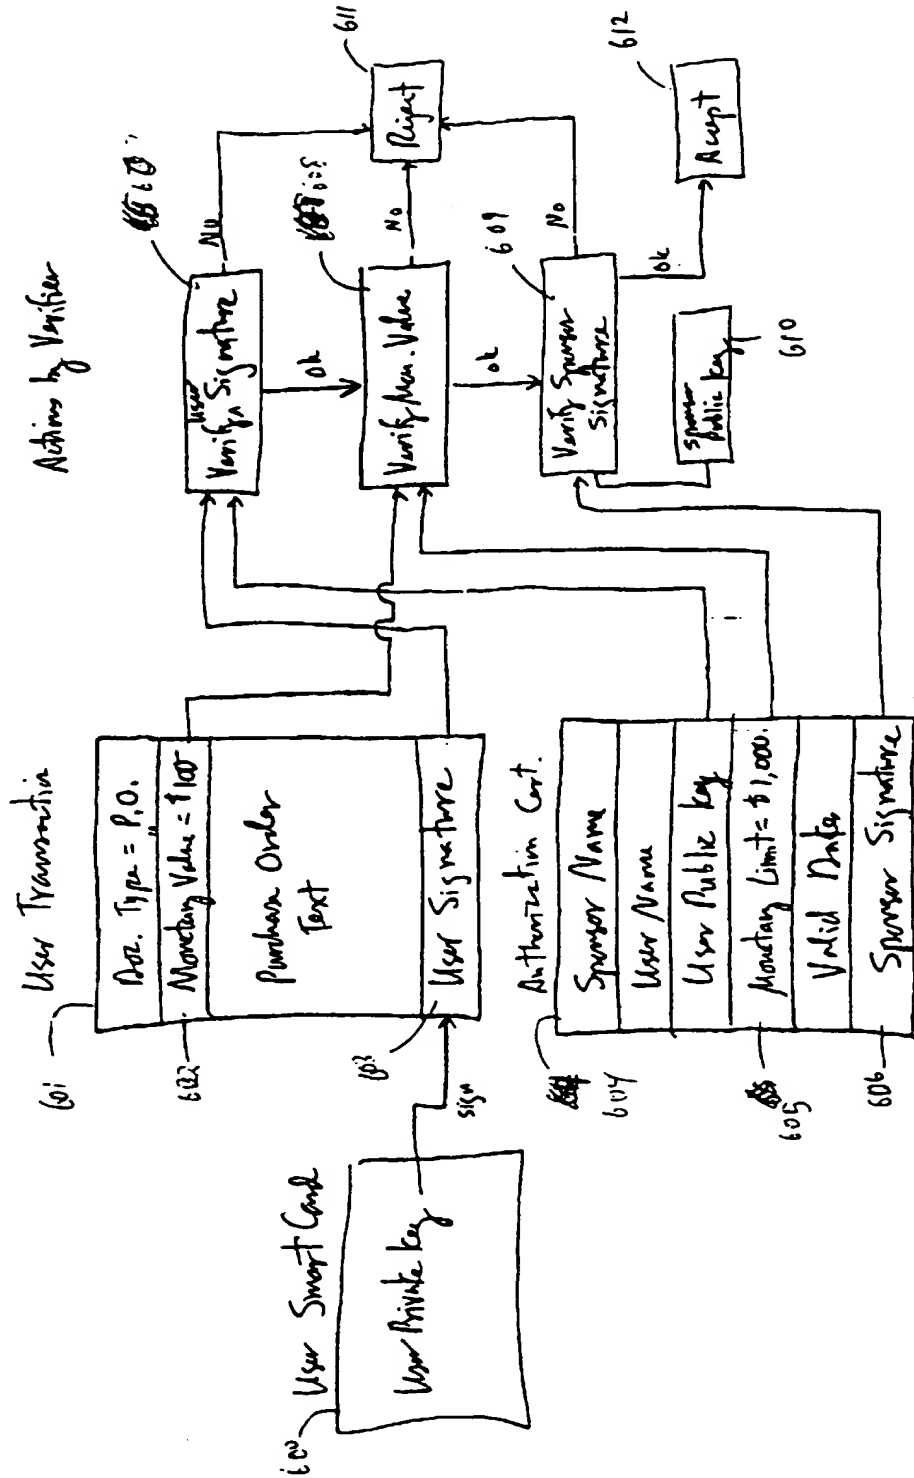 User Smart Card
600
User Private Key
sign
User Transaction
601
Doc. Type = P.O.
602
Monetary Value = $100
Purchase Order
Text
603
User Signature
Authorization Cert.
604
Sponsor Name
User Name
User Public Key
605
Monetary Limit = $1,000.
Valid Dates
606
Sponsor Signature
Actions by Verifier
User
Verify Signature
No
Ok
Verify Mon. Value
No
Ok
609
Verify Sponsor
Signature
No
Ok
Sponsor
Public Key
610
Reject
611
Accept
612